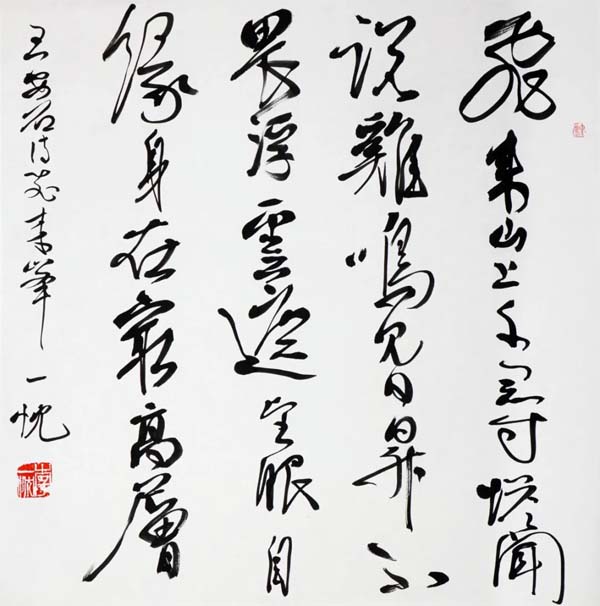 飛來山上千尋塔聞
說雞鳴見日昇不
畏浮雲遮望眼自
緣身在最高層
王安石詩飛來峯 一忱